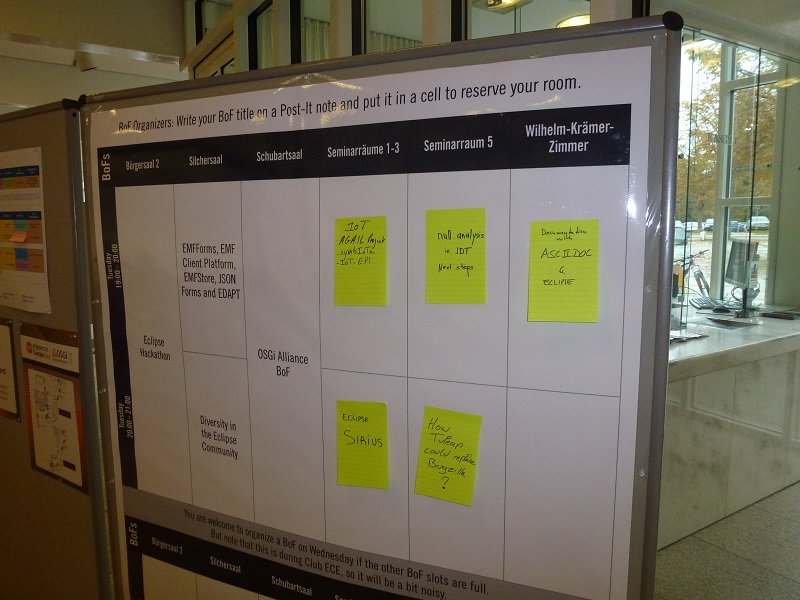 BoF Organizers: Write your BoF title on a Post-It note and put it in a cell to reserve your room.
BoFs
Bürgersaal 2
Silchersaal
Schubartsaal
Seminarräume 1-3
Seminarraum 5
Wilhelm-Krämer-
Zimmer
Tuesday
19:00 - 20:00
Eclipse
Hackathon
EMFForms, EMF
Client Platform,
EMFStore, JSON
Forms and EDAPT
OSGi Alliance
BoF
IoT
AGAIL Project
- IoT-EPI
null analysis
in JDT
Next steps
Documentation
with
ASCIIDOC
&
ECLIPSE
Tuesday
20:00 - 21:00
Diversity in
the Eclipse
Community
ECLIPSE
SIRIUS
How
Tuleap
could replace
Bugzilla
?
You are welcome to organize a BoF on Wednesday if the other BoF slots are full.
But note that this is during Club ECE, so it will be a bit noisy.
BoFs
Bürgersaal 2
Silchersaal
Schubartsaal
OSGi